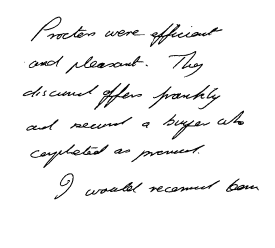 Proctors were efficient
and pleasant. They
discussed offers frankly
and secured a buyer who
completed as promised.
I would recommend them